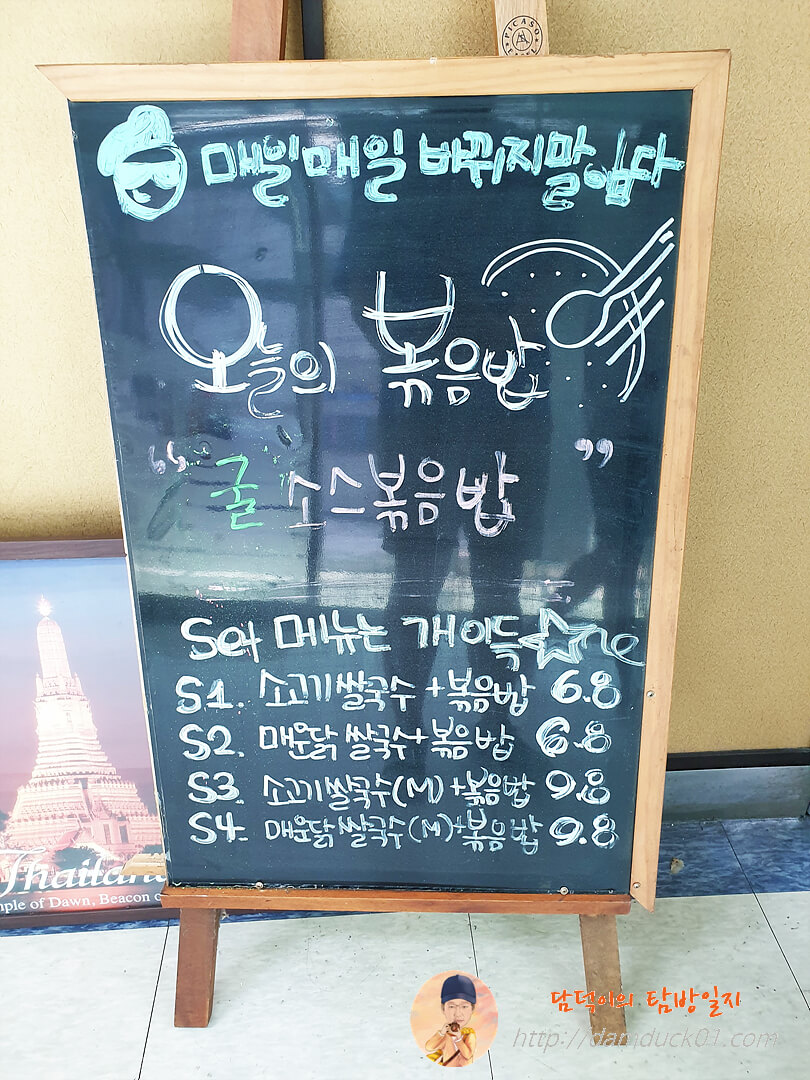 PICASO
매일매일 바뀌지말입다
오늘의 볶음밥
“ 굴 소스볶음밥 ”
Set 메뉴는 개이득☆
S1. 소고기쌀국수+볶음밥 6.8
S2. 매운닭쌀국수+볶음밥 6.8
S3. 소고기쌀국수(M)+볶음밥 9.8
S4. 매운닭쌀국수(M)+볶음밥 9.8
Thailan
mple of Dawn, Beacon
담덕이의 탐방일지
http://damduck01.com